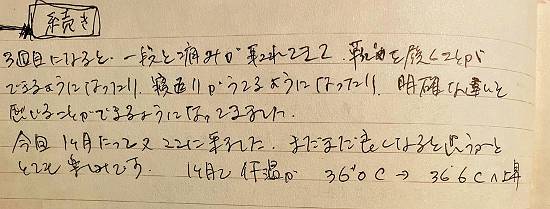 続き
3回目になると、一段と痛みが取れてきて、靴下を履くことが
できるようになったり、寝返りがうてるようになったり、明確な違いを
感じることができるようになってきました。
今回1ヶ月たって又ここに来ました。まだまだ良くなると思うと
とても楽しみです。 1ヶ月で体温が 36°0C → 36°6Cへ上昇